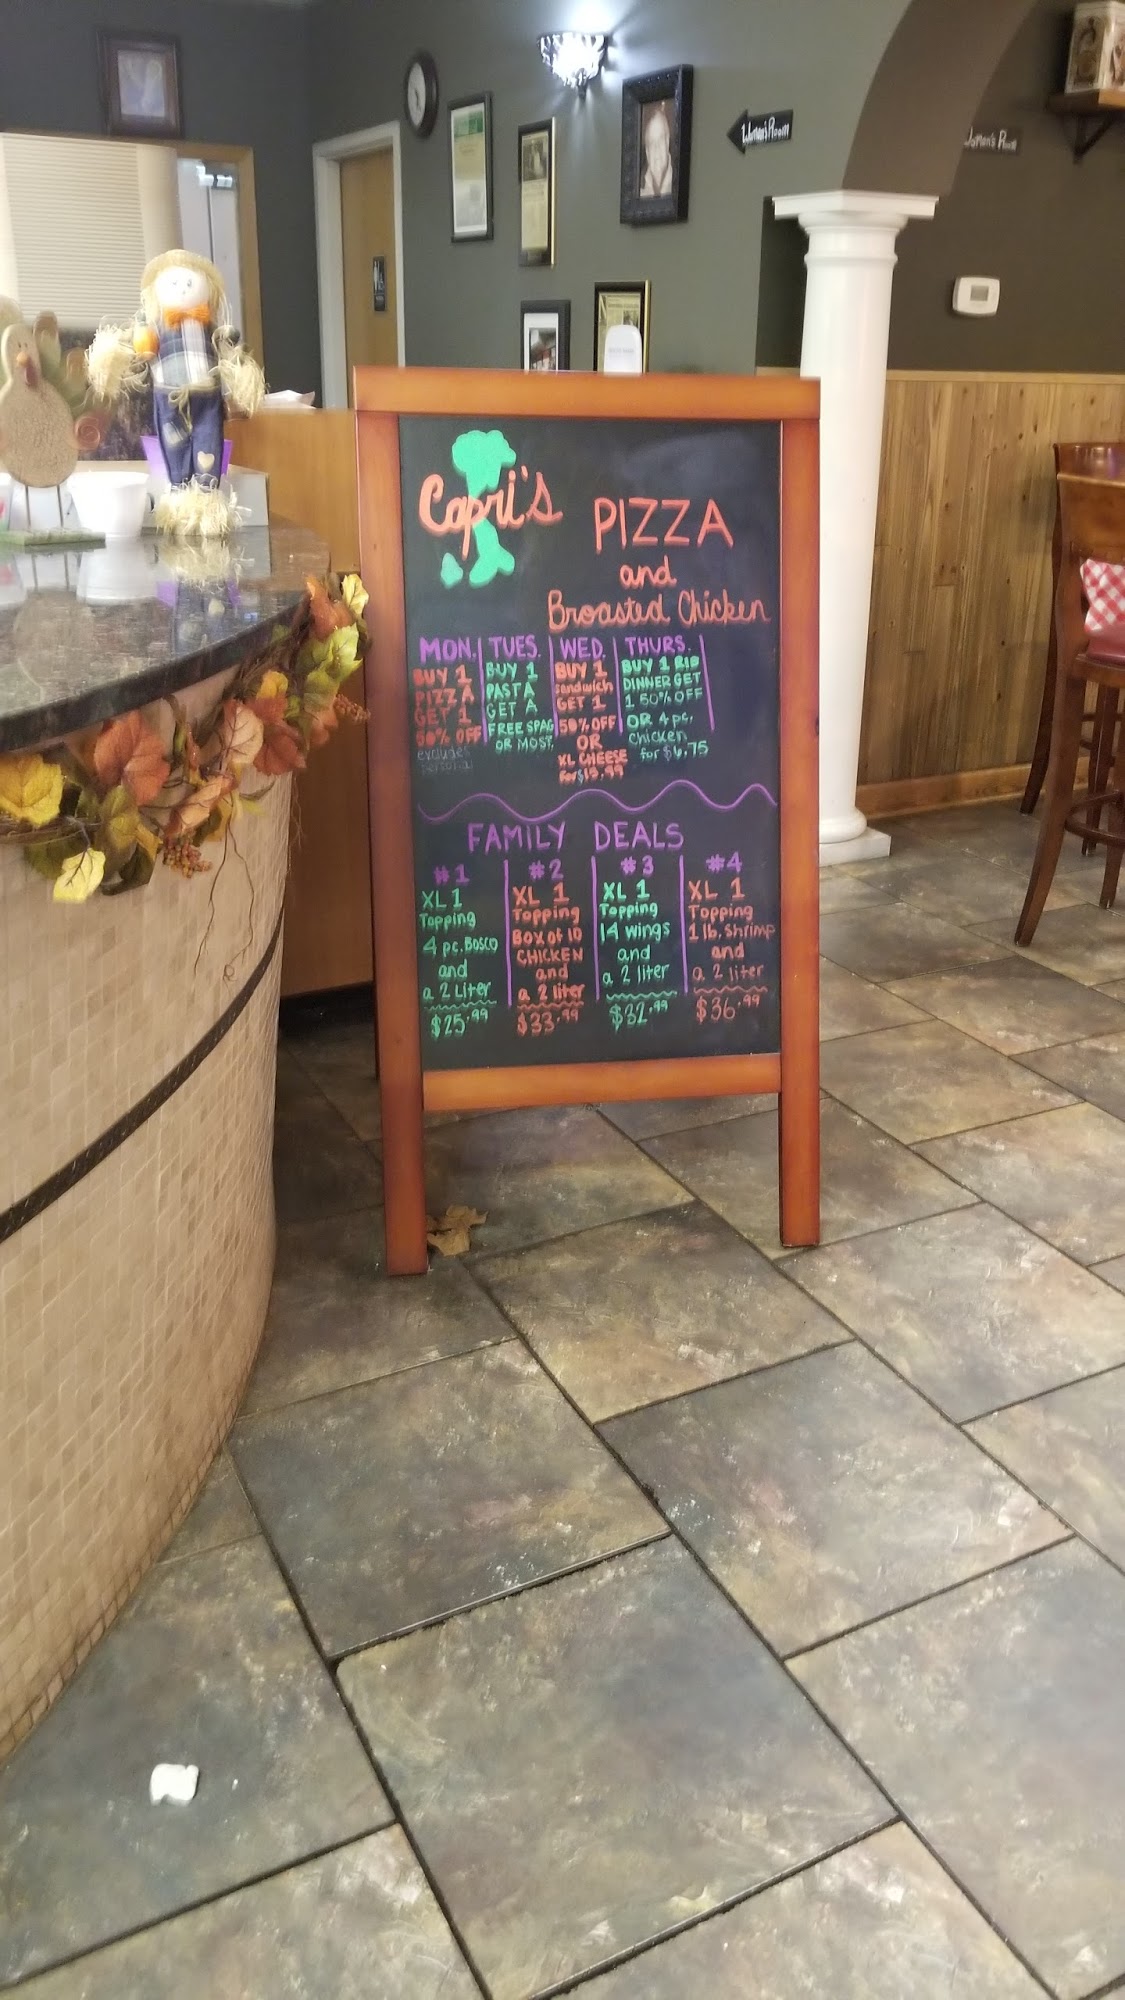 Women's Room
Women's Room
Capri's
PIZZA
and
Broasted Chicken
MON.
BUY 1
PIZZA
GET 1
50% OFF
excludes
personal
TUES.
BUY 1
PASTA
GET A
FREE SPAG
OR MOST.
WED.
BUY 1
sandwich
GET 1
50% OFF
OR
XL CHEESE
for $13.99
THURS.
BUY 1 RIB
DINNER GET
1 50% OFF
OR 4 pc.
chicken
for $6.75
FAMILY DEALS
#1
XL 1
Topping
4 pc. BOSCO
and
a 2 Liter
$25.99
#2
XL 1
Topping
BOX of 10
CHICKEN
and
a 2 liter
$33.99
#3
XL 1
Topping
14 wings
and
a 2 liter
$32.99
#4
XL 1
Topping
1 lb. Shrimp
and
a 2 liter
$36.99